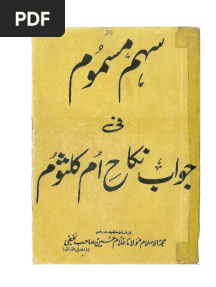 PDF
سہم مسموم
فی
جواب نکاح ام کلثوم
حجۃ الاسلام مولانا غلام حسین صاحب نجفی